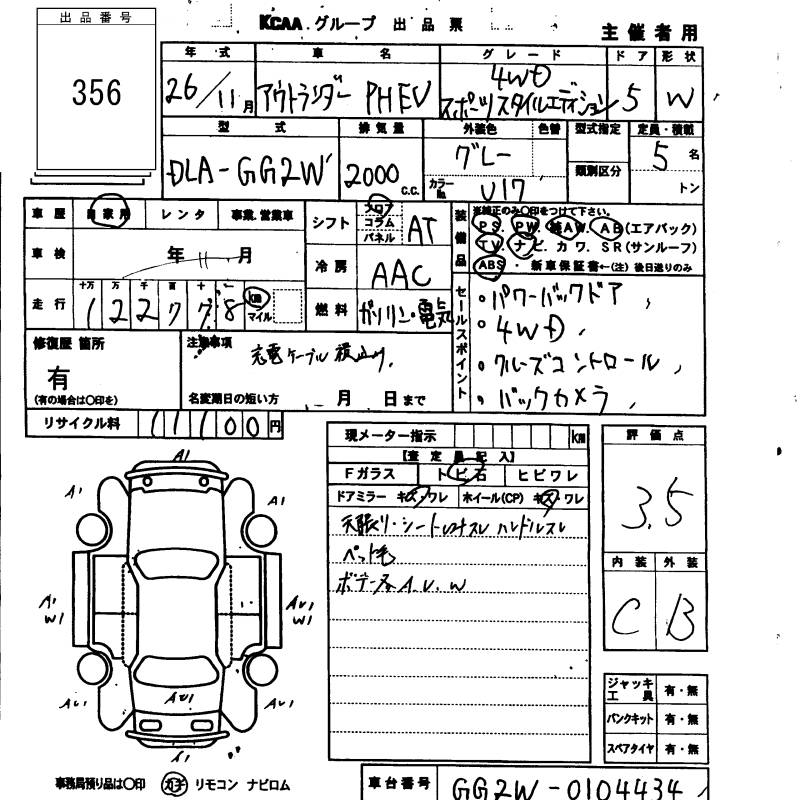 出品番号
356
KCAA グループ 出品票
主催者用
年式 車名 グレード ドア 形状
26/11月 アウトランダー PHEV 4WD スポーツスタイルエディション 5 W
型式 排気量 外装色 色替 型式指定 定員・積載
DLA-GG2W 2000 c.c. グレー 類別区分 5名
カラーNo. U17 トン
車歴 自家用 レンタ 事業.営業車
シフト フロア コラム パネル AT
装備品 ※純正のみ○印をつけて下さい。
PS. PW. 純AW. AB(エアバック)
TV. ナビ. カワ. SR(サンルーフ)
ABS ・ 新車保証書←(注)後日送りのみ
車検 年 月
冷房 AAC
走行 十万 万 千 百 十 一
122778 km マイル
燃料 ガソリン・電気
セールスポイント
・パワーバックドア
・4WD
・クルーズコントロール
・バックカメラ
修復歴 箇所
有
(有の場合は○印を)
注意事項
充電ケーブル
名変期日の短い方 月 日まで
リサイクル料 11100円
現メーター指示 km
【査定員記入】
Fガラス トビ石 ヒビワレ
ドアミラー キズ・ワレ ホイール(CP) キズ・ワレ
天張り・シート ハンドルスレ
ペット毛
ボデー各A.U.W
評価点
3.5
内装 外装
C B
A1
A1 A1
A1 W1 AU1 W1
AU1 AU1 AU1
A1
ジャッキ工具 有・無
パンクキット 有・無
スペアタイヤ 有・無
事務局預り品は○印 カギ リモコン ナビロム
車台番号 GG2W-0104434